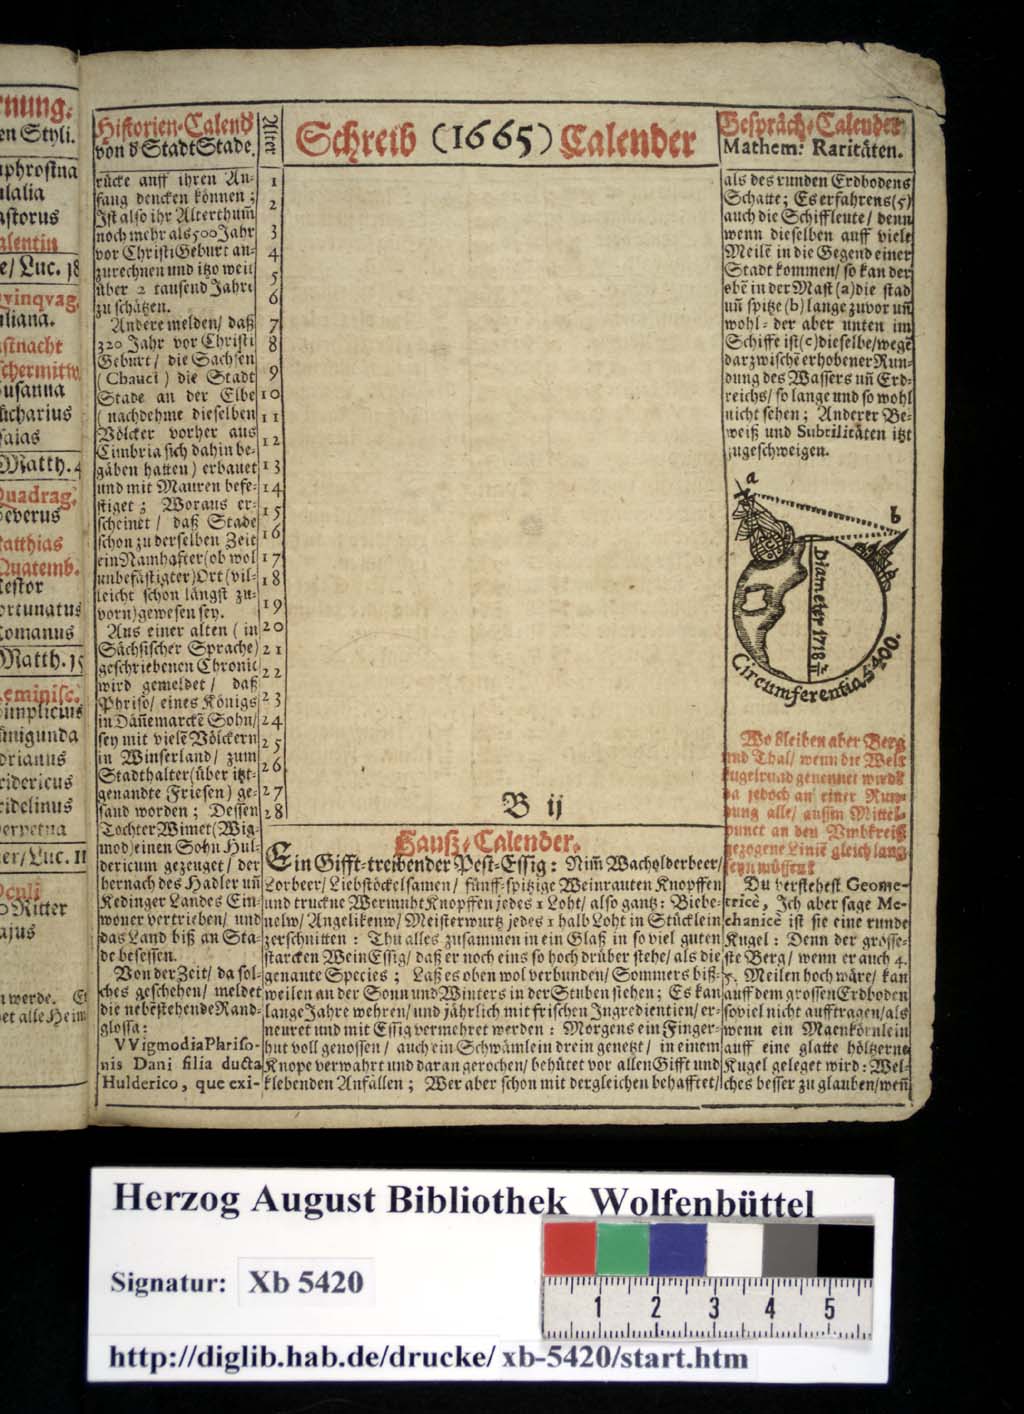 nung.
en Styli.
phrosina
ulalia
astorus
alentin
e/ Luc. 18
qvinqvag.
uliana.
astnacht
schermittw.
usanna
ucharius
saias
Matth. 4
Quadrag.
everus
atthias
Quatemb.
Nestor
ortunatus
Romanus
Matth. 15
eminisc.
implicius
unigunda
drianus
ridericus
ridelinus
Perpetua
er/ Luc. 11
Oculi
Ritter
ajus
n werde.
et alle Heim
Historien-Calend
von d Stadt Stade.
rücke auff ihren An-
fang dencken können;
Ist also ihr Alterthum̃
noch mehr als 500 Jahr
vor Christi Geburt an-
zurechnen und itzo weit
über 2 tausend Jahre
zu schätzen.
Andere melden/ daß
320 Jahr vor Christi
Geburt/ die Sachsen
(Chauci) die Stadt
Stade an der Elbe
(nachdehme dieselben
Völcker vorher aus
Cimbria sich dahin be-
gäben hatten) erbauet
und mit Mauren befe-
stiget; Woraus er-
scheinet/ daß Stade
schon zu derselben Zeit
ein Namhafter (ob wol
unbefästigter) Ort (vil-
leicht schon längst zu-
vorn) gewesen sey.
Aus einer alten (in
Sächsischer Sprache)
geschriebenen Chronic
wird gemeldet/ daß
Phriso/ eines Königs
in Däñemarckẽ Sohn/
sey mit vielẽ Völckern
in Winserland/ zum
Stadthalter (über itzt-
genandte Friesen) ge-
sand worden; Dessen
Tochter Wimet (Wig-
mod) einen Sohn Hul-
dericum gezeuget/ der
hernach des Hadler uñ
Kedinger Landes Ein-
woner vertrieben/ und
das Land biß an Sta-
de besessen.
Von der Zeit/ da sol-
ches geschehen/ meldet
die nebẽstehende Rand-
glossa:
VVigmodia Phriso-
nis Dani filia ducta
Hulderico, que exi-
Alter
1
2
3
4
5
6
7
8
9
10
11
12
13
14
15
16
17
18
19
20
21
22
23
24
25
26
27
28
Schreib (1665) Calender
B ij
Hauß-Calender.
Ein Gifft-treibender Pest-Essig: Nim̃ Wacholderbeer/
Lorbeer/ Liebstöckelsamen/ fünff-spitzige Weinrauten Knopffen
und truckne Wermuht Knopffen jedes 1 Loht/ also gantz: Biebe-
nelw/ Angelikenw/ Meisterwurtz jedes 1 halb Loht in Stücklein
zerschnitten: Thu alles zusammen in ein Glaß in so viel guten
starcken WeinEssig/ daß er noch eins so hoch drüber stehe/ als die
genante Species; Laß es oben wol verbunden/ Sommers biß-
weilen an der Sonn und Winters in der Stuben stehen; Es kan
lange Jahre wehren/ und jährlich mit frischen Ingredientien/ er-
neuret und mit Essig vermehret werden: Morgens ein Finger-
hut voll genossen/ auch ein Schwämlein drein genetzt/ in einem
Knope verwahrt und daran gerochen/ behütet vor allen Gifft und
klebenden Anfällen; Wer aber schon mit dergleichen behafftet/
Gespräch-Calender
Mathem: Raritäten.
als des runden Erdbodens
Schatte; Es erfahrens (5)
auch die Schiffleute/ denn
wenn dieselben auff viele
Meilẽ in die Gegend einer
Stadt kommen/ so kan der
ebẽ in der Mast (a) die stad
uñ spitze (b) lange zuvor uñ
wohl- der aber unten im
Schiffe ist (c) dieselbe/ wegẽ
darzwischẽ erhobener Run-
dung des Wassers uñ Erd-
reichs/ so lange und so wohl
nicht sehen; Anderer Be-
weiß und Subtilitäten itzt
zugeschweigen.
a
b
Diameter 1718 2/11
Circumferentia, 5400.
Wo bleiben aber Berg
und Thal/ wenn die Welt
kugelrund genennet wird?
da jedoch an einer Run-
dung alle/ aussm Mittel-
punct an den Umbkreiß
gezogene Liniẽ gleich lang
seyn müssen?
Du verstehest Geome-
tricè, Ich aber sage Me-
chanicè ist sie eine runde
Kugel: Denn der grösse-
ste Berg/ wenn er auch 4.
5. Meilen hoch wäre/ kan
auff dem grossen Erdboden
soviel nicht aufftragen/ als
wenn ein Maenkörnlein
auff eine glatte höltzerne
Kugel geleget wird: Wel-
ches besser zu glauben/ weñ
Herzog August Bibliothek Wolfenbüttel
Signatur: Xb 5420
1 2 3 4 5
http://diglib.hab.de/drucke/xb-5420/start.htm